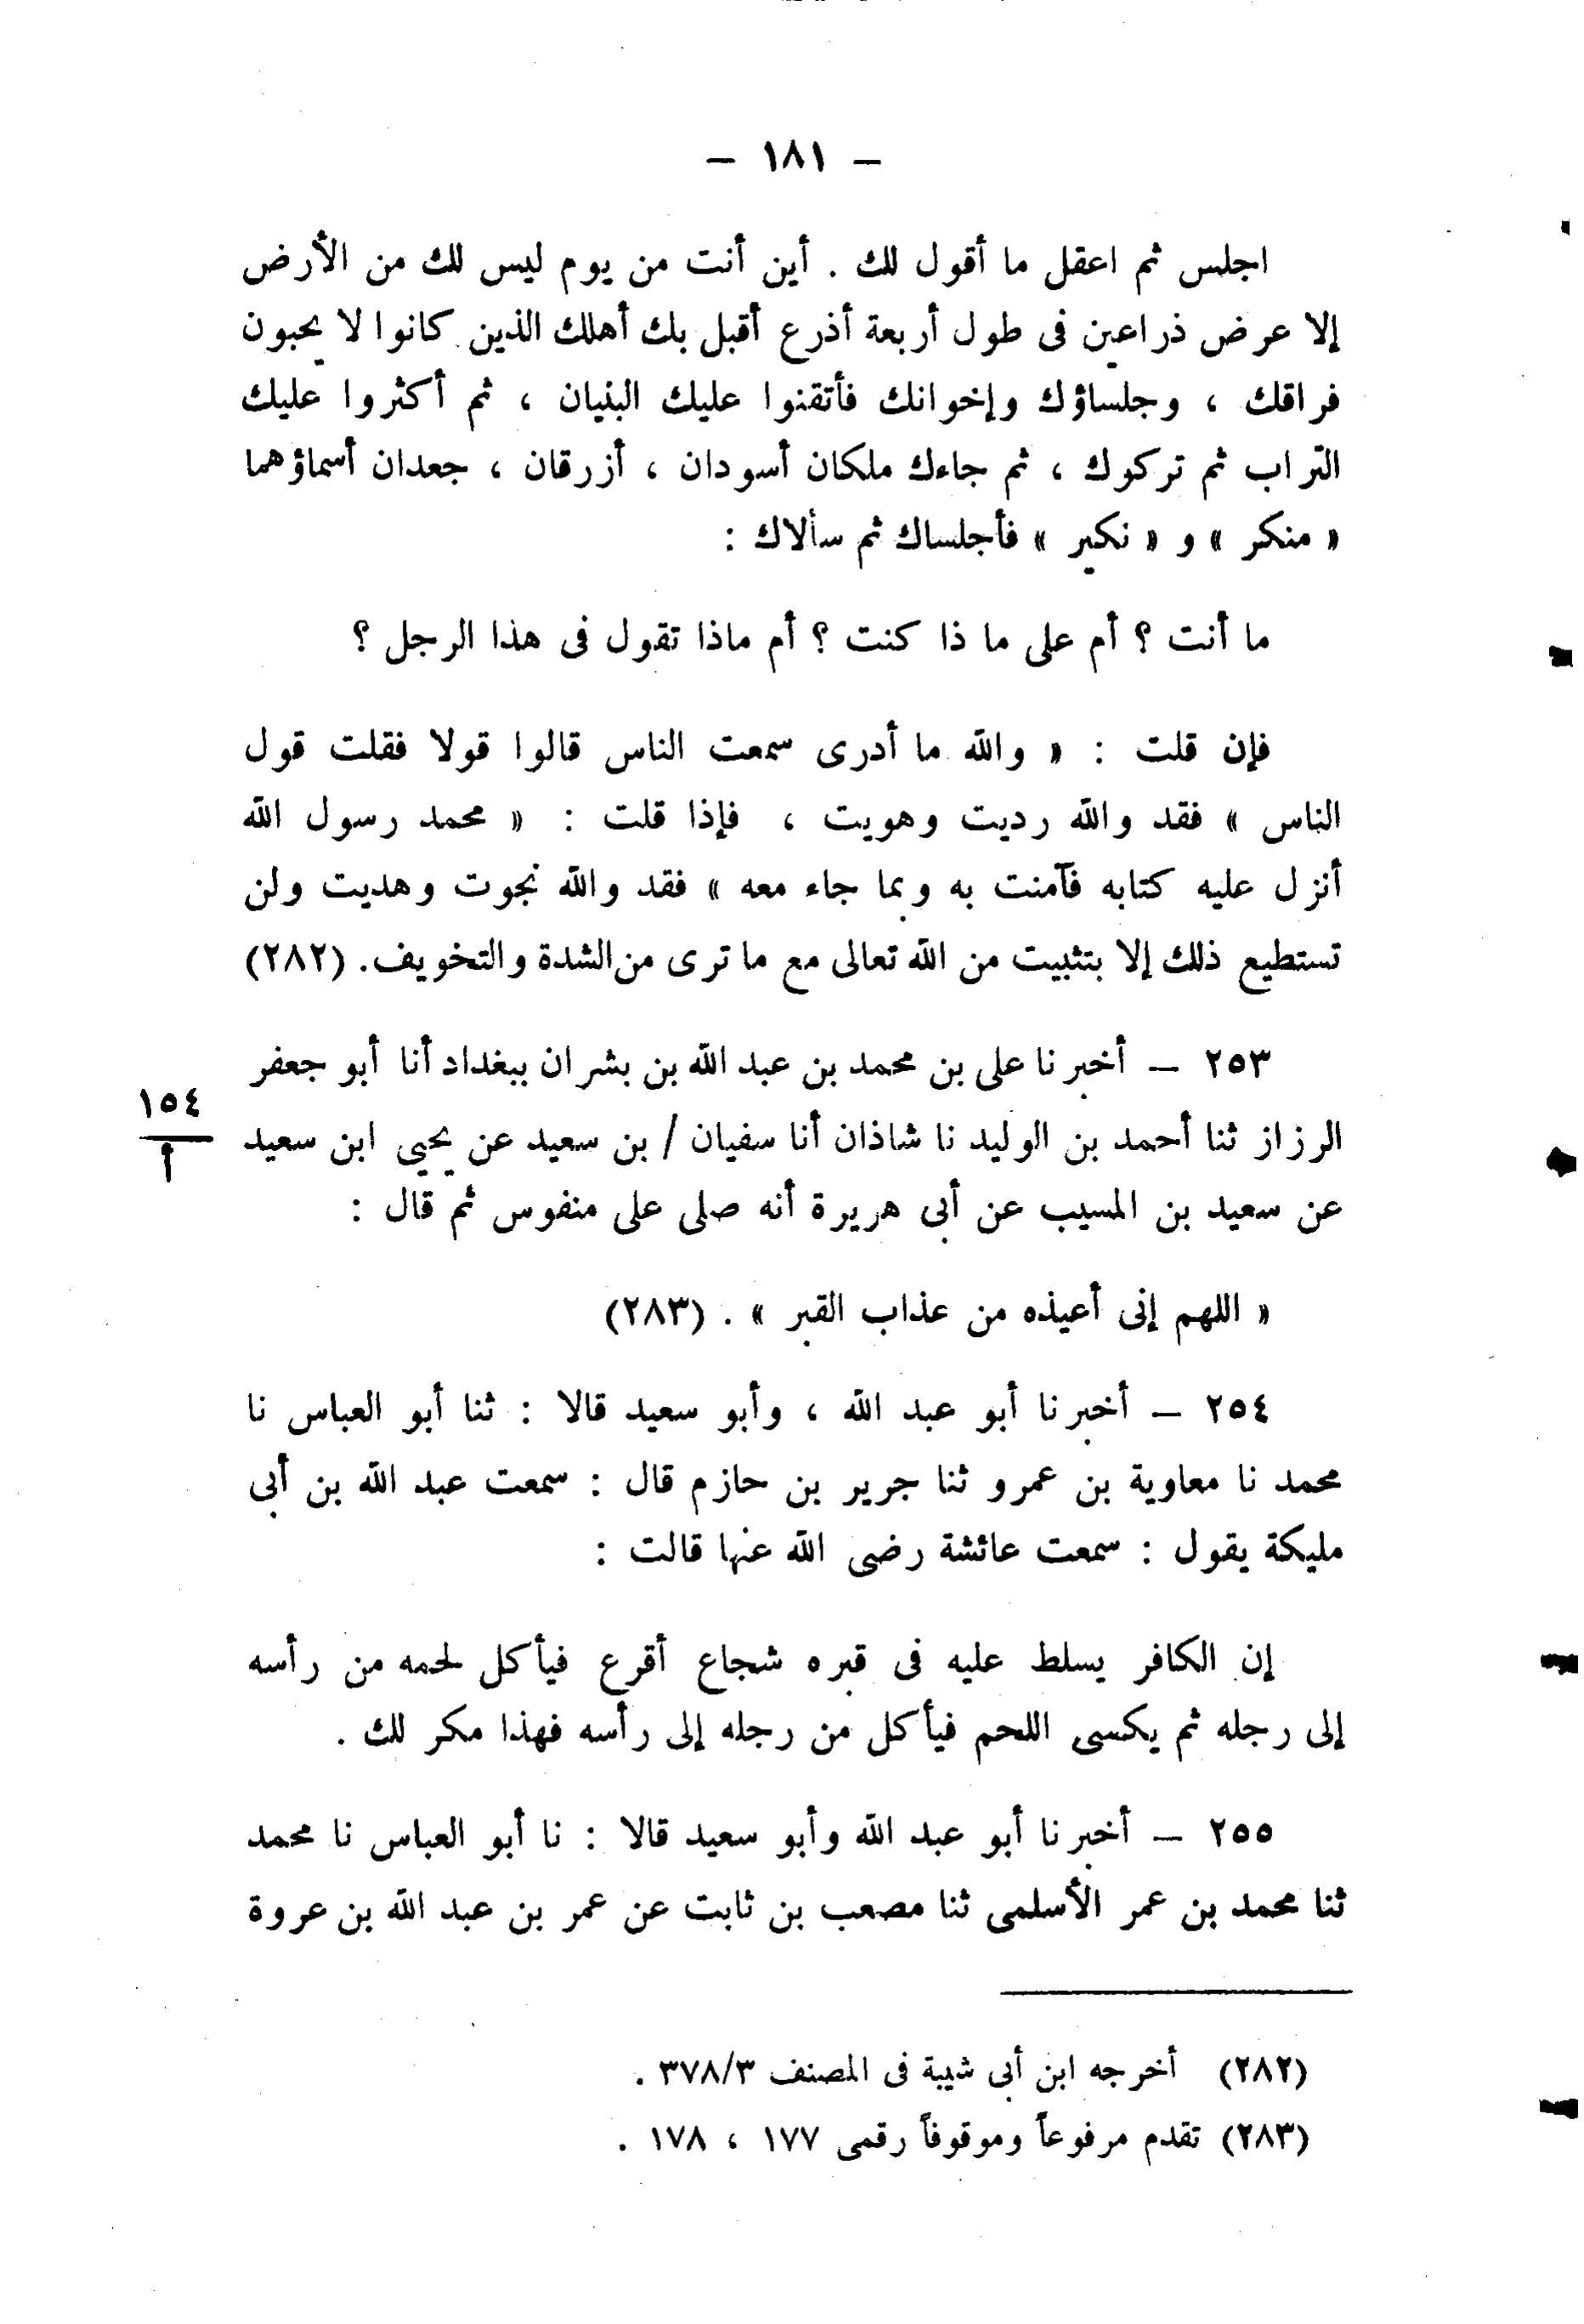 — ١٨١ —
اجلس ثم اعقل ما أقول لك . أين أنت من يوم ليس لك من الأرض
إلا عرض ذراعين فى طول أربعة أذرع أقبل بك أهلك الذين كانوا لا يحبون
فراقك ، وجلساؤك وإخوانك فأتقنوا عليك البنيان ، ثم أكثروا عليك
التراب ثم تركوك ، ثم جاءك ملكان أسودان ، أزرقان ، جعدان أسماؤهما
« منكر » و « نكير » فأجلساك ثم سألاك :
ما أنت ؟ أم على ما ذا كنت ؟ أم ماذا تقول فى هذا الرجل ؟
فإن قلت : « والله ما أدرى سمعت الناس قالوا قولا فقلت قول
الناس » فقد والله رديت وهويت ، فإذا قلت : « محمد رسول الله
أنزل عليه كتابه فآمنت به وبما جاء معه » فقد والله نجوت وهديت ولن
تستطيع ذلك إلا بتثبيت من الله تعالى مع ما ترى من الشدة والتخويف. (٢٨٢)
٢٥٣ — أخبرنا على بن محمد بن عبد الله بن بشران ببغداد أنا أبو جعفر
١٥٤
الرزاز ثنا أحمد بن الوليد نا شاذان أنا سفيان / بن سعيد عن يحيى ابن سعيد
أ
عن سعيد بن المسيب عن أبى هريرة أنه صلى على منفوس ثم قال :
« اللهم إنى أعيذه من عذاب القبر » . (٢٨٣)
٢٥٤ — أخبرنا أبو عبد الله ، وأبو سعيد قالا : ثنا أبو العباس نا
محمد نا معاوية بن عمرو ثنا جرير بن حازم قال : سمعت عبد الله بن أبى
مليكة يقول : سمعت عائشة رضى الله عنها قالت :
إن الكافر يسلط عليه فى قبره شجاع أقرع فيأكل لحمه من رأسه
إلى رجله ثم يكسى اللحم فيأكل من رجله إلى رأسه فهذا مكر لك .
٢٥٥ — أخبرنا أبو عبد الله وأبو سعيد قالا : نا أبو العباس نا محمد
ثنا محمد بن عمر الأسلمى ثنا مصعب بن ثابت عن عمر بن عبد الله بن عروة
(٢٨٢) أخرجه ابن أبى شيبة فى المصنف ٣٧٨/٣ .
(٢٨٣) تقدم مرفوعاً وموقوفاً رقمى ١٧٧ ، ١٧٨ .